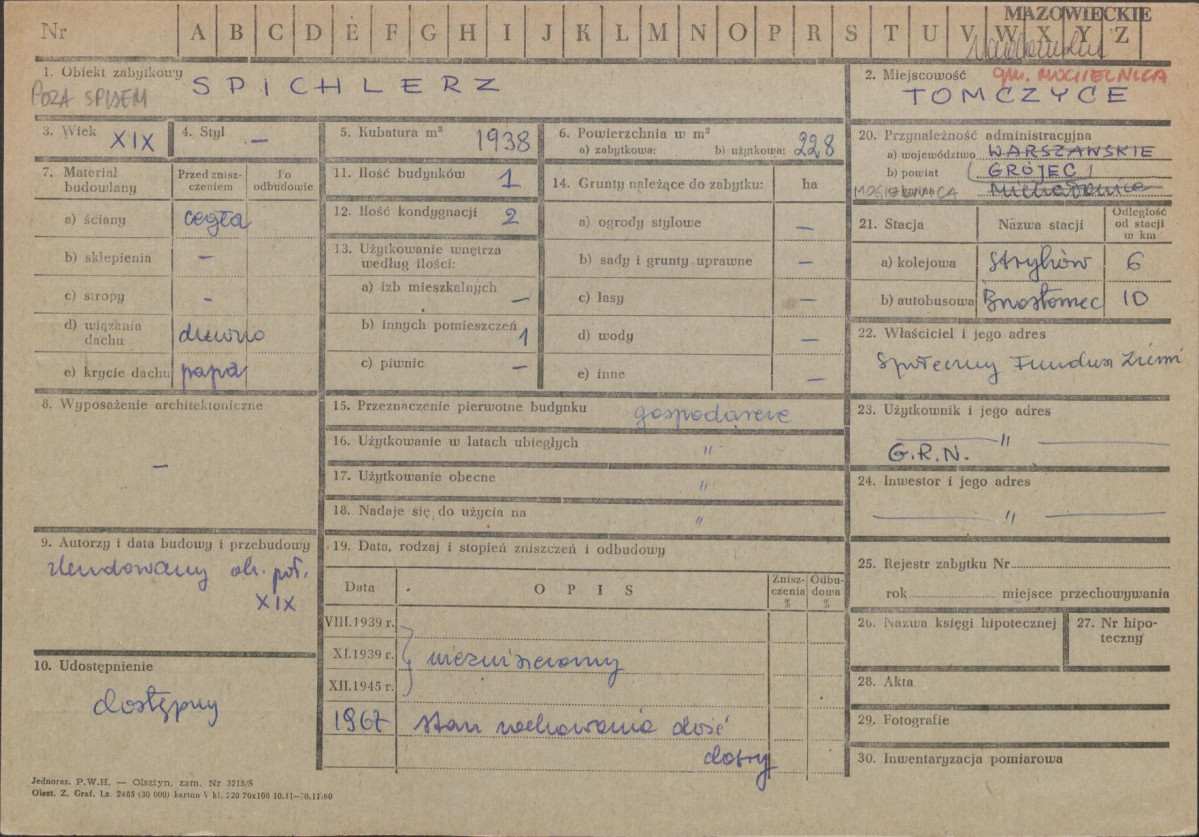 MAZOWIECKIE
Nr A B C D E F G H I J K L M N O P R S T U V W X Y Z
1. Obiekt zabytkowy SPICHLERZ
POZA SPISEM
2. Miejscowość gm. MOGIELNICA
TOMCZYCE
3. Wiek XIX
4. Styl —
5. Kubatura m² 1938
6. Powierzchnia w m²
a) zabytkowa: b) użytkowa: 228
7. Materiał budowlany
Przed zniszczeniem
Po odbudowie
a) ściany cegła
b) sklepienia —
c) stropy -
d) wiązania dachu drewno
e) krycie dachu papa
8. Wyposażenie architektoniczne
—
9. Autorzy i data budowy i przebudowy
ok. poł.
XIX
10. Udostępnienie
dostępny
11. Ilość budynków 1
12. Ilość kondygnacji 2
13. Użytkowanie wnętrza
według ilości:
a) izb mieszkalnych —
b) innych pomieszczeń 1
c) piwnic —
14. Grunty należące do zabytku: ha
a) ogrody stylowe —
b) sady i grunty uprawne —
c) lasy —
d) wody —
e) inne —
15. Przeznaczenie pierwotne budynku gospodarcze
16. Użytkowanie w latach ubiegłych "
17. Użytkowanie obecne "
18. Nadaje się do użycia na "
19. Data, rodzaj i stopień zniszczeń i odbudowy
Data OPIS Zniszczenia % Odbudowa %
VIII.1939 r.
XI.1939 r. niezniszczony
XII.1945 r.
1967 stan zachowania dość
dobry
20. Przynależność administracyjna
a) województwo WARSZAWSKIE
b) powiat GRÓJEC
MOGIELNICA c) gmina
21. Stacja Nazwa stacji Odległość od stacji w km
a) kolejowa 6
b) autobusowa 10
22. Właściciel i jego adres
Społeczny Fundusz Ziemi
23. Użytkownik i jego adres
— " —
G.R.N.
24. Inwestor i jego adres
— " —
25. Rejestr zabytku Nr
rok miejsce przechowywania
26. Nazwa księgi hipotecznej
27. Nr hipoteczny
28. Akta
29. Fotografie
30. Inwentaryzacja pomiarowa
Jednoraz. P.W.H. — Olsztyn, zam. Nr 5215/S
Olszt. Z. Graf. Lz. 2485 (30 000) karton V kl. 220 70x100